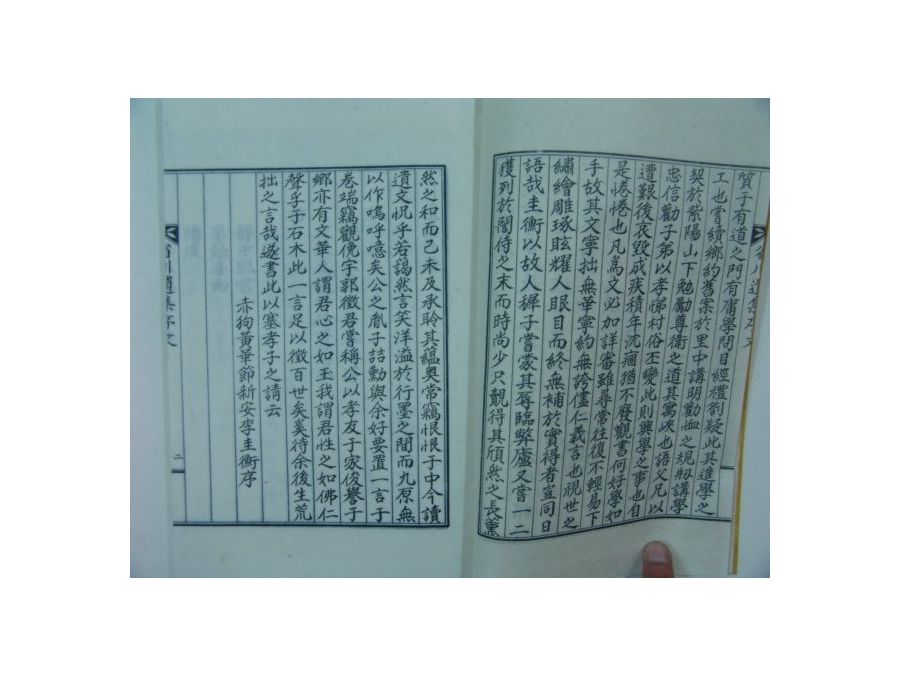 質于有道之門有庸學問目經禮劄疑此其進學之
工也嘗續鄉約舊案於里中講明勸恤之規粉講學
契於紫陽山下勉勵尊衛之道其寓峽也語父兄以
忠信勸子弟以孝悌村俗丕變此則興學之事也自
遭艱後哀毀成疾積年沈痼猶不廢觀書何好學如
是惓惓也凡爲文必加詳審雖尋常往復不輕易下
手故其文寧拙無華寧約無誇儘仁義言也視世之
繡繪雕琢眩耀人眼目而終無補於實得者豈同日
語哉圭衡以故人穉子嘗蒙其辱臨弊廬又嘗一二
獲列於闇侍之末而時尚少只覿得其頎然之長薰
然之和而已未及承聆其蘊奧常竊恨恨于中今讀
遺文怳乎若謁然言笑洋溢於行墨之間而九原無
以作嗚呼噫矣公之胤子喆勳與余好要置一言于
卷端竊觀俛宇郭徵君嘗稱公以孝友于家俊譽于
鄉亦有文華人謂君心之如玉我謂君性之如佛仁
聲孚于石木此一言足以徵百世矣奚待余後生荒
拙之言哉遂書此以塞孝子之請云
赤狗黃華節新安李圭衡序
省川遺集序文
二